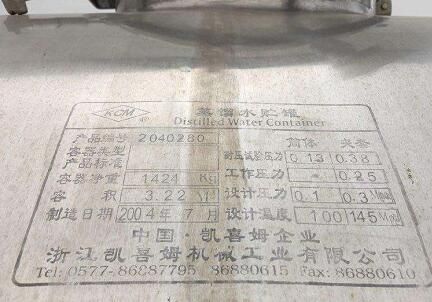 KCM ® 蒸馏水贮罐
Distilled Water Container
产品编号 2040280 筒体 夹套
容器类型 耐压试验压力 0.13 0.38
产品标准
容器净重 1424 Kg 工作压力 - 0.25
容积 3.22 M³ 设计压力 0.1 0.3 Mpa
制造日期 2004年7月 设计温度 100 145 Mpa
中国·凯喜姆企业
浙江凯喜姆机械工业有限公司
Tel: 0577-86887795 86880615 Fax: 86880610